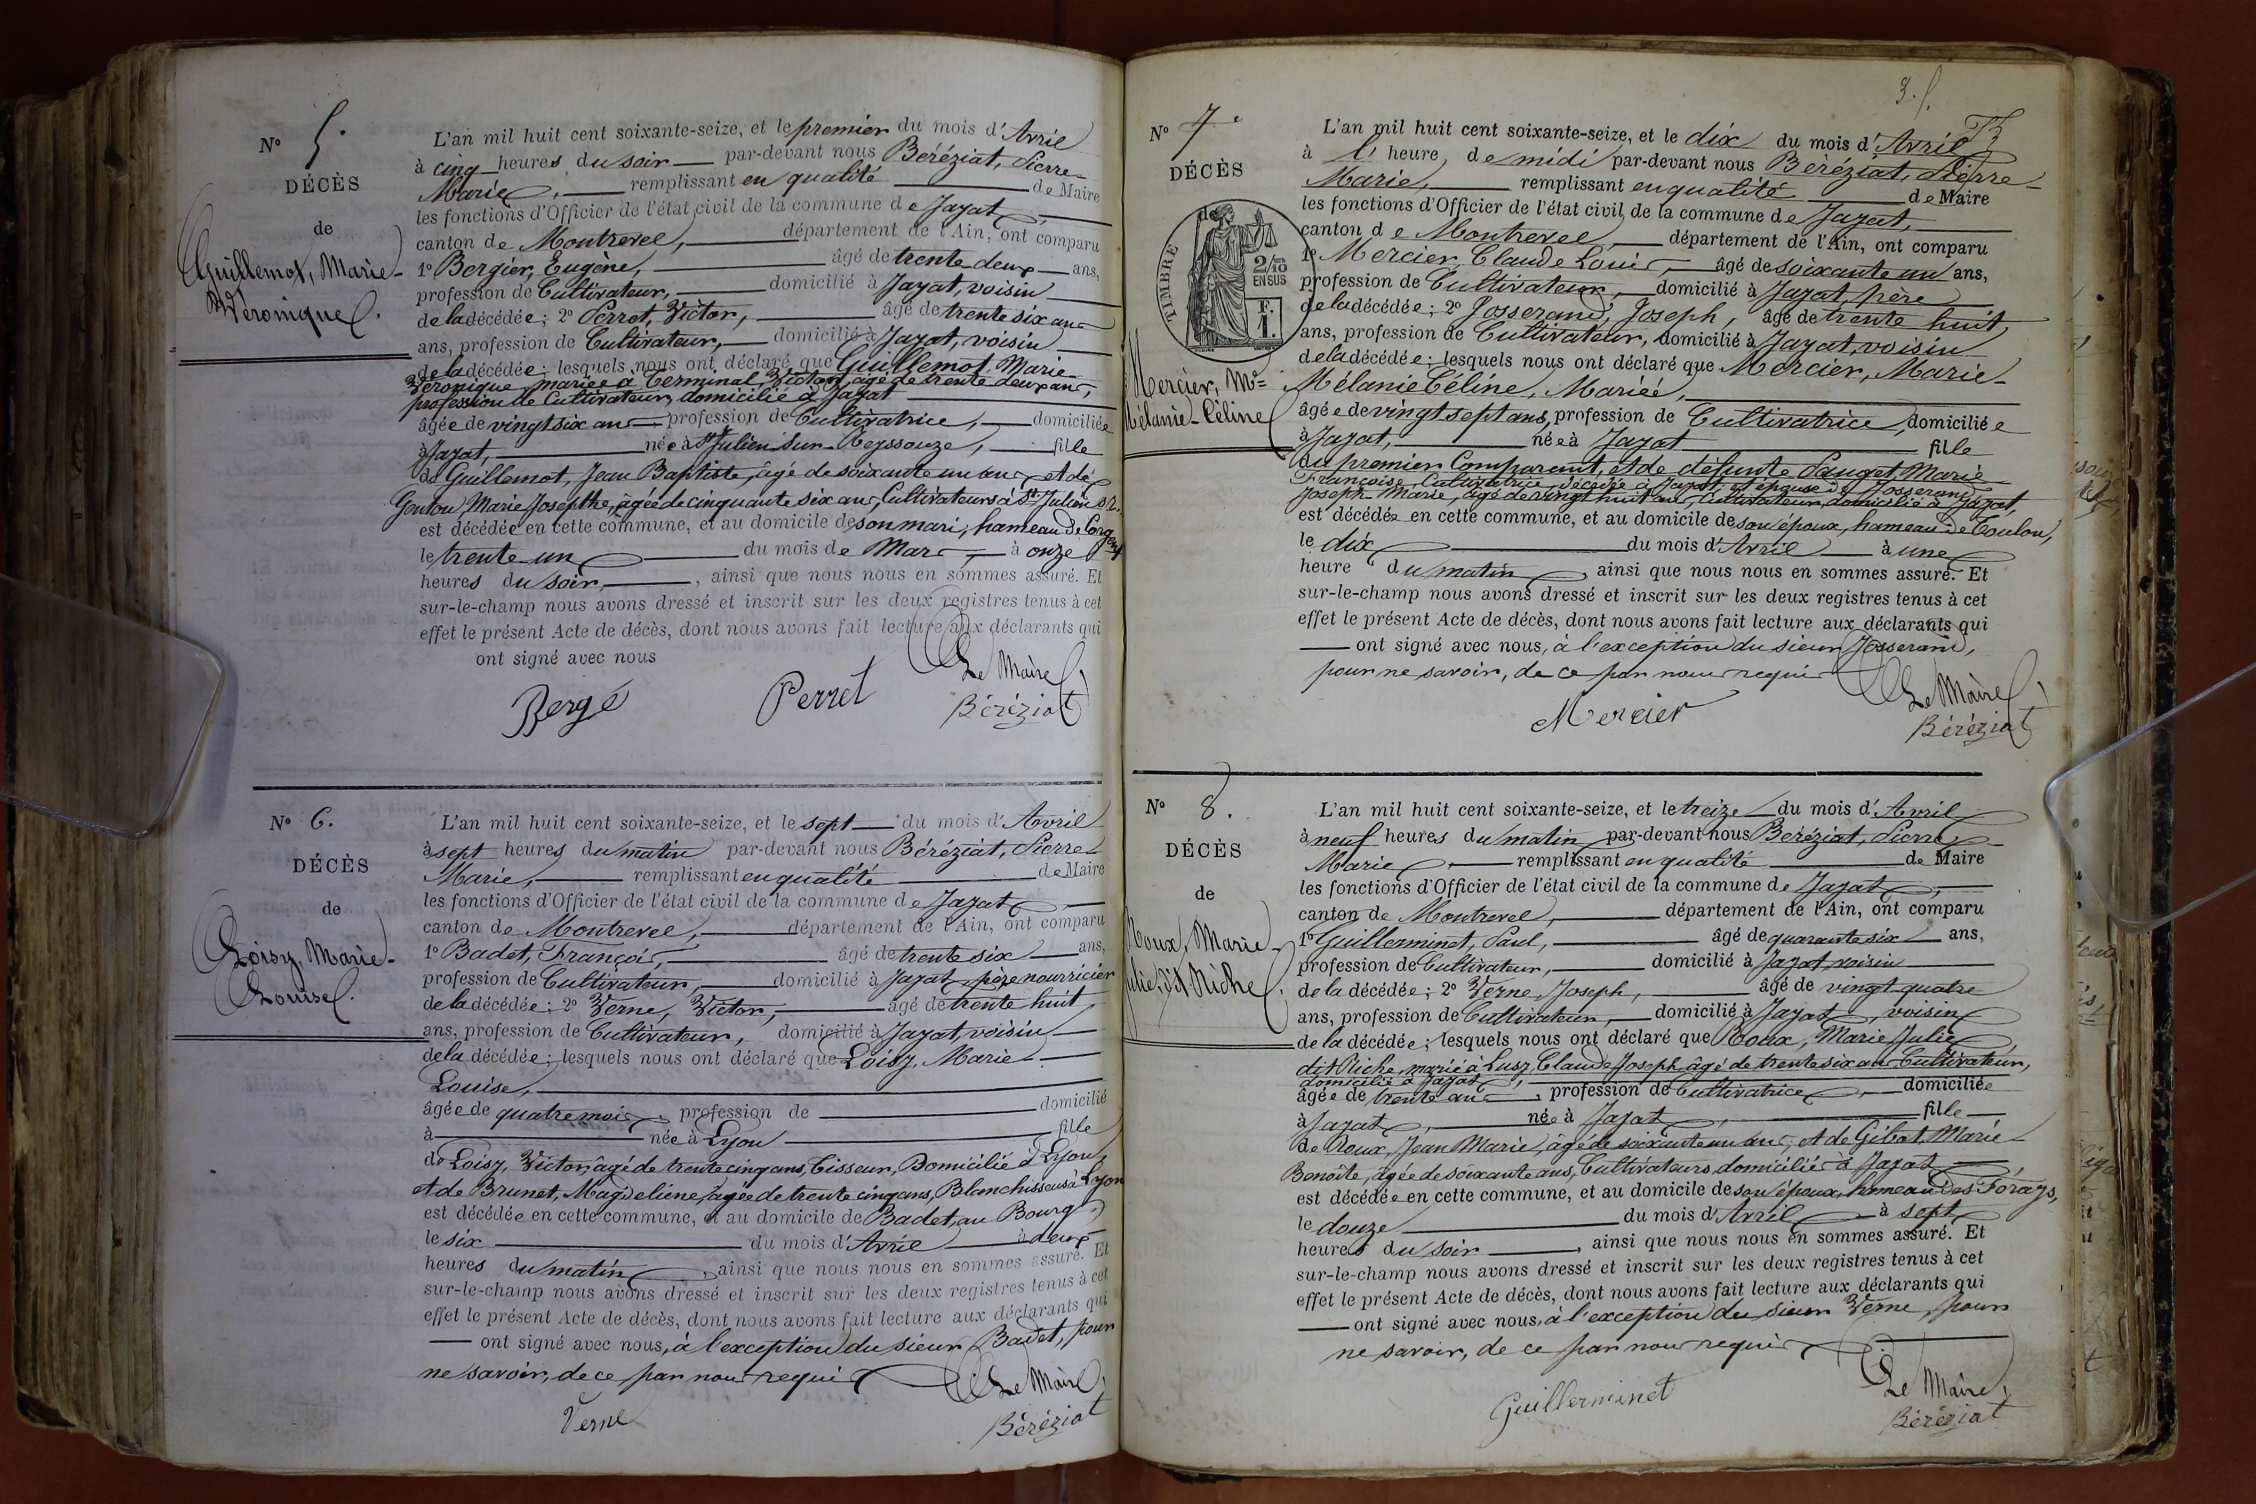 N° 5.
DÉCÈS
de
Guillemot, Marie-
Véronique
L'an mil huit cent soixante-seize, et le premier du mois d'Avril
à cinq heures du soir par-devant nous Béréziat, Pierre-
Marie, remplissant en qualité de Maire
les fonctions d'Officier de l'état civil de la commune de Jayat,
canton de Montrevel, département de l'Ain, ont comparu
1° Bergier, Eugène, âgé de trente deux ans,
profession de Cultivateur, domicilié à Jayat, voisin
de la décédée; 2° Perrot, Victor, âgé de trente six ans
ans, profession de Cultivateur, domicilié à Jayat, voisin
de la décédée; lesquels nous ont déclaré que Guillemot Marie-
Véronique, mariée à Terminal, Victor, âgé de trente deux ans,
profession de Cultivateur, domicilié à Jayat
âgée de vingt six ans profession de Cultivatrice, domiciliée
à Jayat, née à St Julien sur Reyssouze, fille
de Guillemot, Jean Baptiste, âgé de soixante un ans, et de
Gonton, Marie Josephte, âgée de cinquante six ans, Cultivateurs à St Julien s. R.
est décédée en cette commune, et au domicile de son mari, hameau de
le trente un du mois de Mars, à onze
heures du soir, ainsi que nous nous en sommes assuré. Et
sur-le-champ nous avons dressé et inscrit sur les deux registres tenus à cet
effet le présent Acte de décès, dont nous avons fait lecture aux déclarants qui
ont signé avec nous
Le Maire
Bergé Perret Béréziat
N° 6.
DÉCÈS
de
Loisy, Marie-
Louise.
L'an mil huit cent soixante-seize, et le sept du mois d'Avril
à sept heures du matin par-devant nous Béréziat, Pierre-
Marie, remplissant en qualité de Maire
les fonctions d'Officier de l'état civil de la commune de Jayat,
canton de Montrevel, département de l'Ain, ont comparu
1° Badet, François, âgé de trente six ans,
profession de Cultivateur, domicilié à Jayat, père nourricier
de la décédée; 2° Verne, Victor, âgé de trente huit
ans, profession de Cultivateur, domicilié à Jayat, voisin
de la décédée; lesquels nous ont déclaré que Loisy, Marie-
Louise,
âgée de quatre mois, profession de domicilié
à née à Lyon fille
de Loisy, Victor, âgé de trente cinq ans, Tisseur, Domicilié à Lyon,
et de Brunet, Magdeliene, âgée de trente cinq ans, Blanchisseuse à Lyon
est décédée en cette commune, et au domicile de Badet, au Bourg,
le six du mois d'Avril à deux
heures du matin, ainsi que nous nous en sommes assuré. Et
sur-le-champ nous avons dressé et inscrit sur les deux registres tenus à cet
effet le présent Acte de décès, dont nous avons fait lecture aux déclarants qui
ont signé avec nous, à l'exception du sieur Badet, pour
ne savoir, de ce par nous requis
Le Maire,
Verne Béréziat
3.
N° 7.
DÉCÈS
de
TIMBRE
2/10
EN SUS
F.
1.
Mercier, Mie
Mélanie-Céline
L'an mil huit cent soixante-seize, et le dix du mois d'Avril
à l' heure de midi par-devant nous Béréziat, Pierre-
Marie, remplissant en qualité de Maire
les fonctions d'Officier de l'état civil de la commune de Jayat,
canton de Montrevel, département de l'Ain, ont comparu
1° Mercier, Claude Louis, âgé de soixante un ans,
profession de Cultivateur, domicilié à Jayat, père
de la décédée; 2° Josserand, Joseph, âgé de trente huit
ans, profession de Cultivateur, domicilié à Jayat, voisin
de la décédée; lesquels nous ont déclaré que Mercier, Marie-
Mélanie Céline, Mariée,
âgée de vingt sept ans, profession de Cultivatrice, domiciliée
à Jayat, née à Jayat fille
du premier Comparant, et de défunte Pauget, Marie
Françoise, Cultivatrice, décédée à Jayat, et épouse de Josserand,
Joseph-Marie, âgé de vingt huit ans, Cultivateur, domicilié à Jayat,
est décédée en cette commune, et au domicile de son époux, hameau de Toulon,
le dix du mois d'Avril à une
heure du matin, ainsi que nous nous en sommes assuré. Et
sur-le-champ nous avons dressé et inscrit sur les deux registres tenus à cet
effet le présent Acte de décès, dont nous avons fait lecture aux déclarants qui
ont signé avec nous, à l'exception du sieur Josserand,
pour ne savoir, de ce par nous requis
Le Maire
Mercier Béréziat
N° 8.
DÉCÈS
de
Roux, Marie-
Julie, dit Riche
L'an mil huit cent soixante-seize, et le treize du mois d'Avril
à neuf heures du matin par-devant nous Béréziat, Pierre
Marie, remplissant en qualité de Maire
les fonctions d'Officier de l'état civil de la commune de Jayat,
canton de Montrevel, département de l'Ain, ont comparu
1° Guillerminet, Paul, âgé de quarante six ans,
profession de Cultivateur, domicilié à Jayat, voisin
de la décédée; 2° Verne, Joseph, âgé de vingt quatre
ans, profession de Cultivateur, domicilié à Jayat, voisin
de la décédée; lesquels nous ont déclaré que Roux, Marie Julie
dit Riche, mariée à Lusy, Claude Joseph, âgé de trente six ans Cultivateur,
domicilié à Jayat,
âgée de trente ans, profession de Cultivatrice, domiciliée
à Jayat, née à Jayat, fille
de Roux, Jean Marie, âgé de soixante un ans, et de Gibot, Marie-
Benoîte, âgée de soixante ans, Cultivateurs, domiciliés à Jayat
est décédée en cette commune, et au domicile de son époux, hameau des Forays,
le douze du mois d'Avril à sept
heures du soir, ainsi que nous nous en sommes assuré. Et
sur-le-champ nous avons dressé et inscrit sur les deux registres tenus à cet
effet le présent Acte de décès, dont nous avons fait lecture aux déclarants qui
ont signé avec nous, à l'exception du sieur Verne, pour
ne savoir, de ce par nous requis
Le Maire,
Guillerminet Béréziat